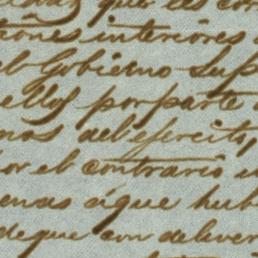 que les cor
interiores
el Gobierno Sup
ellos por parte
nos del ejercito,
por el contrario
enas á que hub
de que con deliver